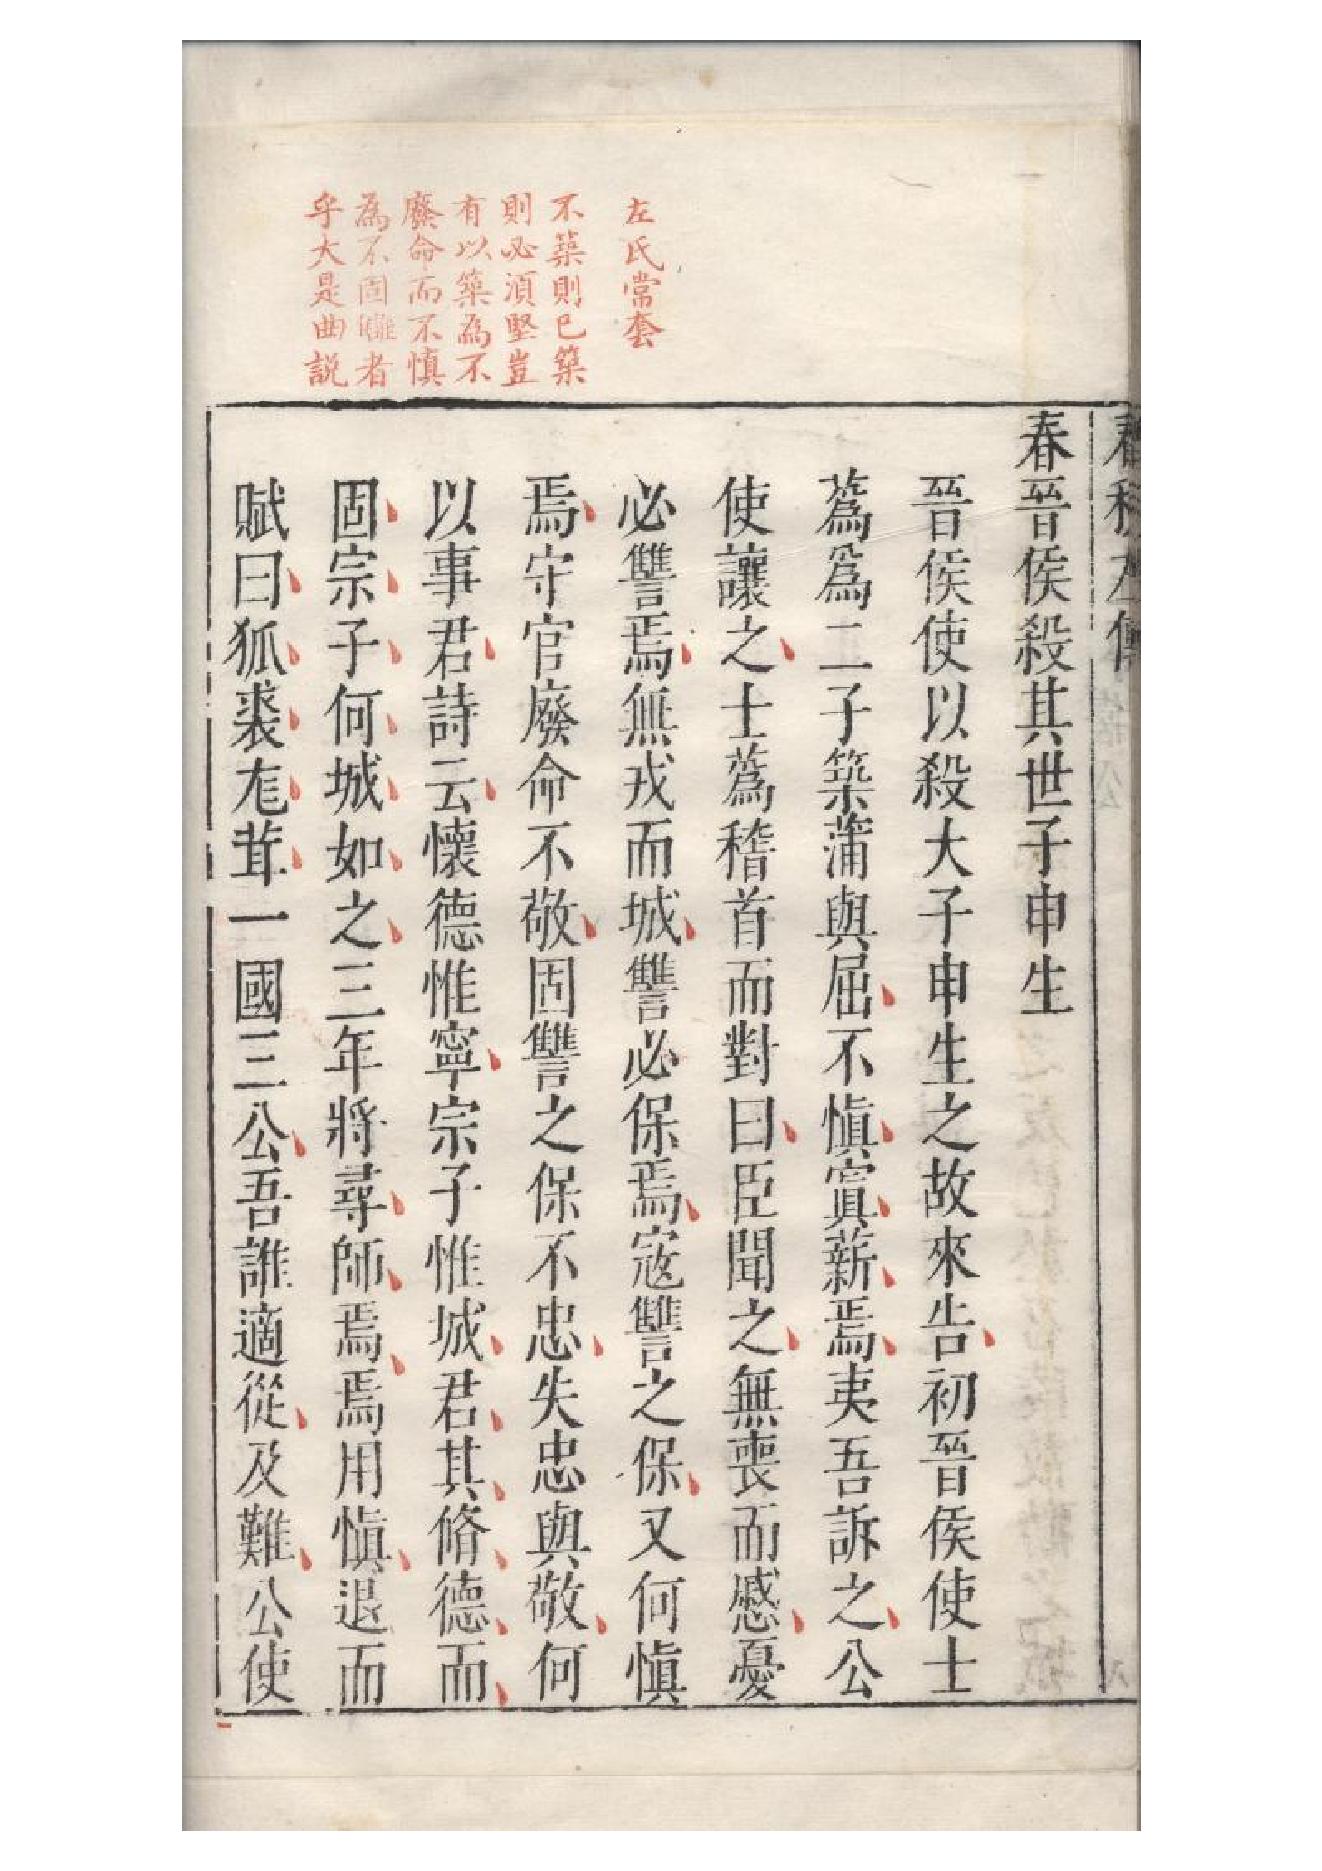 左氏常套
不築則已築
則必須堅豈
有以築為不
廢命而不慎
為不固讎者
乎大是曲説
春秋左傳
僖公
八
春晉侯殺其世子申生
晉侯使以殺大子申生之故來告初晉侯使士
蔿爲二子築蒲與屈不慎寘薪焉夷吾訴之公
使讓之士蔿稽首而對曰臣聞之無喪而慼憂
必讐焉無戎而城讐必保焉寇讐之保又何慎
焉守官廢命不敬固讐之保不忠失忠與敬何
以事君詩云懷德惟寧宗子惟城君其脩德而
固宗子何城如之三年將尋師焉焉用慎退而
賦曰狐裘尨茸一國三公吾誰適從及難公使